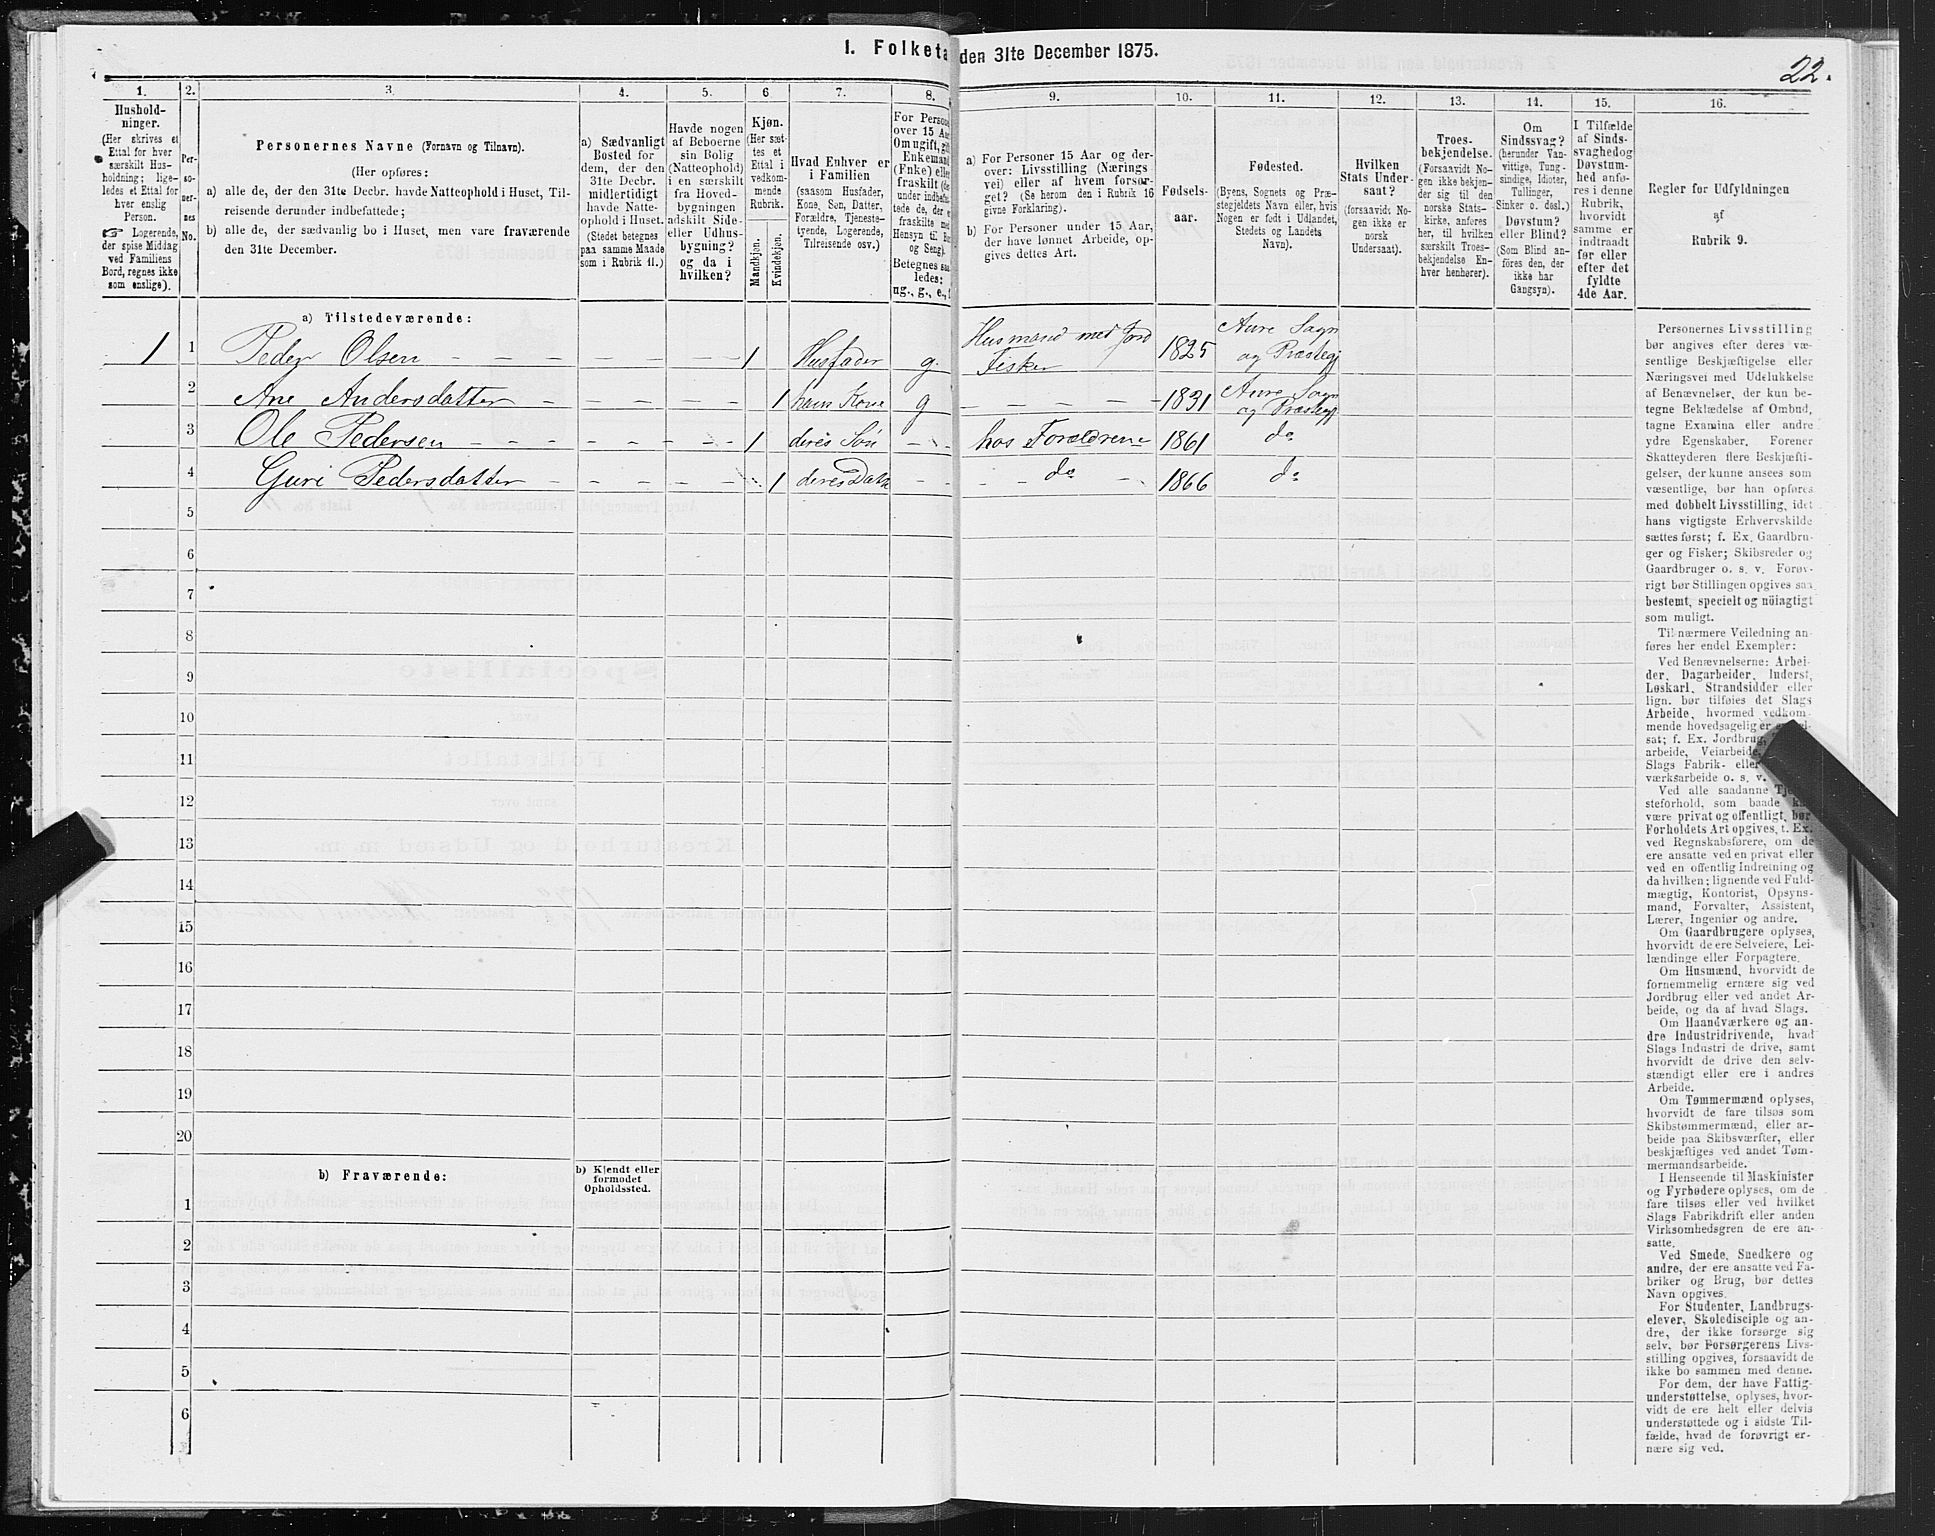 1. Folketa den 31te December 1875.
22.
1. 2. 3. 4. 5. 6 7. 8. 9. 10. 11. 12. 13. 14. 15. 16.
Hushold-
ninger.
(Her skrives et
Ettal for hver
særskilt Hus-
holdning; lige-
ledes et Ettal for
hver enslig
Person.
☞ Logerende,
der spise Middag
ved Familiens
Bord, regnes ikke
som enslige).
Per-
so-
ner-
nes
No.
Personernes Navne (Fornavn og Tilnavn).
(Her opføres:
a) alle de, der den 31te Decbr. havde Natteophold i Huset, Til-
reisende derunder indbefattede;
b) alle de, der sædvanlig bo i Huset, men vare fraværende
den 31te December.
a) Sædvanligt
Bosted for
dem, der den
31te Decbr.
midlertidigt
havde Natte-
ophold i Huset.
(Stedet betegnes
paa samme Maade
som i Rubrik 11.)
Havde nogen
af Beboerne
sin Bolig
(Natteophold)
i en særskilt
fra Hoved-
bygningen
adskilt Side-
eller Udhus-
bygning?
og da i
hvilken?
Kjøn.
(Her sæt-
tes et
Ettal i
vedkom-
mende
Rubrik.
Mandkjøn.
Kvindekjøn.
Hvad Enhver er
i Familien
(saasom Husfader,
Kone, Søn, Datter,
Forældre, Tjeneste-
tyende, Logerende,
Tilreisende osv.)
For Persone
over 15 Aa
Om ugift, gift
Enkemand
(Enke) elle
fraskilt (de
under indbefat
tede de, der e
fraskilte med
Hensyn til.
og Seng).
Betegnes saa
ledes:
ug., g., e.,
a) For Personer 15 Aar og der-
over: Livsstilling (Nærings
vei) eller af hvem forsør-
get? (Se herom den i Rubrik 16
givne Forklaring).
b) For Personer under 15 Aar,
der have lønnet Arbeide, op-
gives dettes Art.
Fødsels-
aar.
Fødested.
(Byens, Sognets og Præ-
stegjeldets Navn eller, hvis
Nogen er født i Udlandet,
Stedets og Landets
Navn).
Hvilken
Stats Under-
saat?
(forsaavidt No-
gen ikke er
norsk
Undersaat).
Troes-
bekjendelse.
(Forsaavidt No-
gen ikke bekjen-
der sig til den
norske Stats-
kirke, anføres
her, til hvilken
særskilt Troes-
bekjendelse En-
hver henhører).
Om
Sindssvag?
(herunder Van-
vittige, Tung-
sindige, Idioter,
Tullinger,
Sinker o. desl.)
Døvstum?
eller Blind?
(Som Blind an-
føres den, der
ikke har
Gangsyn).
I Tilfælde
af Sinds-
svaghed og
Døvstum-
hed anfø-
res i denne
Rubrik,
hvorvidt
samme er
indtraadt
før eller
efter det
fyldte
4de Aar.
Regler for Udfyldningen
af
Rubrik 9.
a) Tilstedeværende:
1 1 Peder Olsen 1 Husfader g. Husmand med Jord Fisker 1825 Aure Sogn og Præstegj
2 Ane Andersdatter 1 hans Kone g 1831 Aure Sogn og Præstegj
3 Ole Pedersen 1 deres Søn hos Forældrene 1861 do
4 Guri Pedersdatter 1 deres Datt do 1866 do
5
6
7
8
9
10
11
12
13
14
15
16
17
18
19
20
b) Fraværende:
b) Kjendt eller
formodet
Opholdssted.
1
2
3
4
5
6
Personernes Livsstilling
bør angives efter deres væ-
sentlige Beskjæftigelse eller
Næringsvei med Udelukkelse
af Benævnelser, der kun be-
tegne Beklædelse af Ombud,
tagne Examina eller andre
ydre Egenskaber. Forener
Skatteyderen flere Beskjæfti-
gelser, der kunne ansees som
væsentlige, bør han opføres
med dobbelt Livsstilling, idet
hans vigtigste Erhvervskilde
sættes først; f. Ex. Gaardbru-
ger og Fisker; Skibsreder og
Gaardbruger o. s. v. Forøv-
rigt bør Stillingen opgives saa
bestemt, specielt og nöiagtigt
som muligt.
Til nærmere Veiledning an-
føres her endel Exempler:
Ved Benævnelserne: Arbei-
der, Dagarbeider, Inderst,
Løskarl, Strandsidder eller
lign. bør tilføies det Slags
Arbeide, hvormed vedkom-
mende hovedsagelig er
sat; f. Ex. Jordbrug,
arbeide, Veiarbeide,
Slags Fabrik- eller
værksarbeide o. s. v.
Ved alle saadanne Tje-
steforhold, som baade
være privat og offentligt, bør
Forholdets Art opgives, t. Ex.
ved Regnskabsførere, om de
ere ansatte ved en privat eller
ved en offentlig Indretning og
da hvilken; lignende ved Fuld-
mægtig, Kontorist, Opsyns-
mand, Forvalter, Assistent,
Lærer, Ingeniør og andre.
Om Gaardbrugere oplyses,
hvorvidt de ere Selveiere, Lei-
lændinge eller Forpagtere.
Om Husmænd, hvorvidt de
fornemmelig ernære sig ved
Jordbrug eller ved andet Ar-
beide, og da af hvad Slags.
Om Haandværkere og an-
dre Industridrivende, hvad
Slags Industri de drive, samt
hvorvidt de drive den selv-
stændigt eller ere i andres
Arbeide.
Om Tømmermænd oplyses,
hvorvidt de fare tilsøs som
Skibstømmermænd, eller ar-
beide paa Skibsværfter, eller
beskjæftiges ved andet Tøm-
mermandsarbeide.
I Henseende til Maskinister
og Fyrbødere oplyses, om de
fare tilsøs eller ved hvilket
Slags Fabrikdrift eller anden
Virksomhedsgren de ere an-
satte.
Ved Smede, Snedkere og
andre, der ere ansatte ved Fa-
briker og Brug, bør dettes
Navn opgives.
For Studenter, Landbrugs-
elever, Skoledisciple og an-
dre, der ikke forsørge sig
selv, bør Forsørgerens Livs-
stilling opgives, forsaavidt de
ikke bo sammen med denne.
For dem, der have Fattig-
understøttelse, oplyses, hvor-
vidt de ere helt eller delvis
understøttede og i sidste Til-
fælde, hvad de forøvrigt er-
nære sig ved.